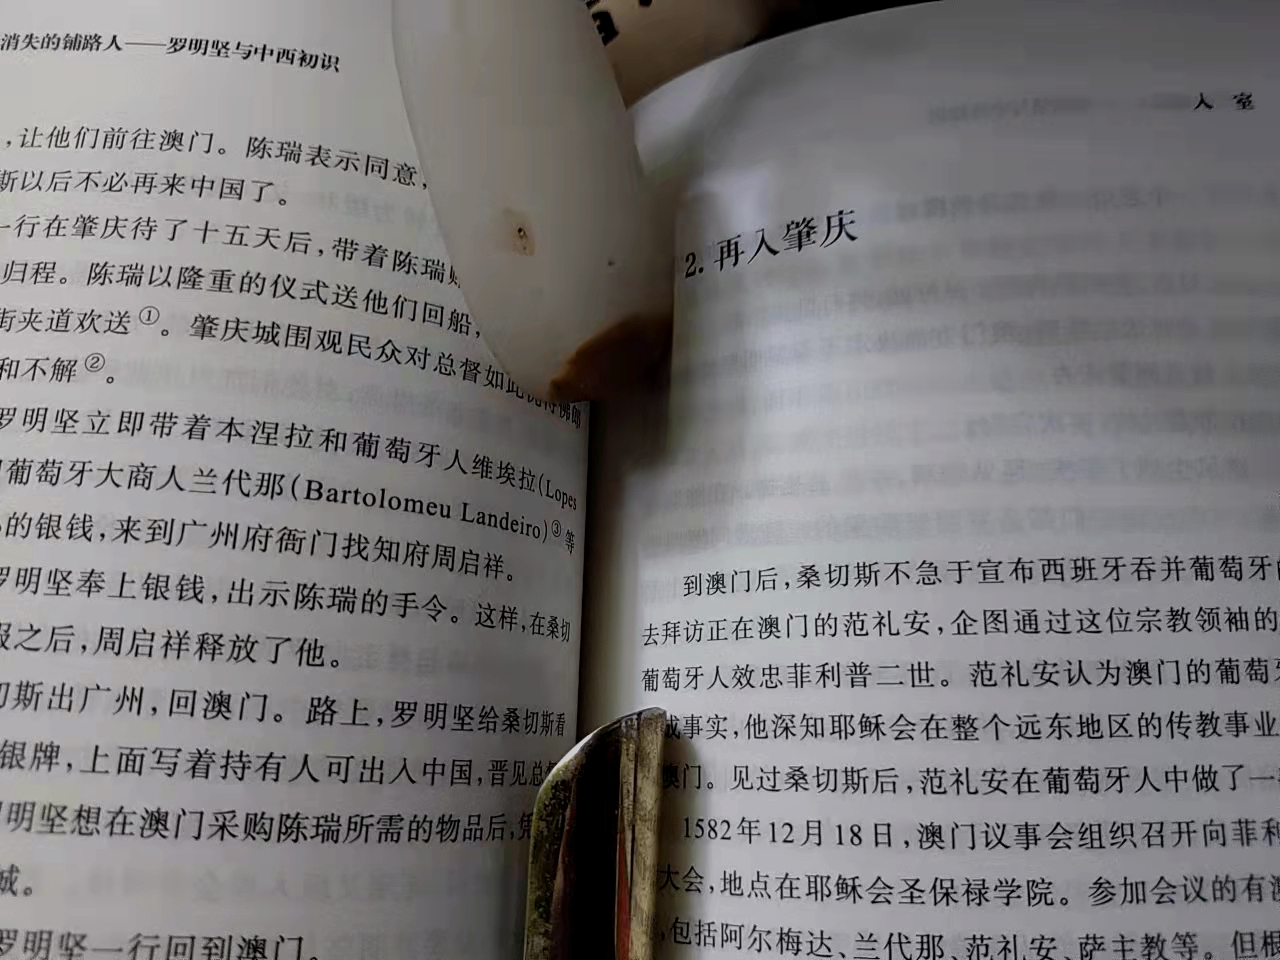 消失的铺路人——罗明坚与中西初识
,让他们前往澳门。陈瑞表示同意,
斯以后不必再来中国了。
一行在肇庆待了十五天后,带着陈瑞
归程。陈瑞以隆重的仪式送他们回船,
街夹道欢送①。肇庆城围观民众对总督如此
和不解②。
罗明坚立即带着本涅拉和葡萄牙人维埃拉(Lopes
葡萄牙大商人兰代那(Bartolomeu Landeiro)③等
的银钱,来到广州府衙门找知府周启祥。
罗明坚奉上银钱,出示陈瑞的手令。这样,在桑切
报之后,周启祥释放了他。
切斯出广州,回澳门。路上,罗明坚给桑切斯看
银牌,上面写着持有人可出入中国,晋见总
明坚想在澳门采购陈瑞所需的物品后,凭
城。
罗明坚一行回到澳门。
入室
2. 再入肇庆
到澳门后,桑切斯不急于宣布西班牙吞并葡萄牙的
去拜访正在澳门的范礼安,企图通过这位宗教领袖的
葡萄牙人效忠菲利普二世。范礼安认为澳门的葡萄牙
成事实,他深知耶稣会在整个远东地区的传教事业
澳门。见过桑切斯后,范礼安在葡萄牙人中做了一
1582年12月18日,澳门议事会组织召开向菲利
大会,地点在耶稣会圣保禄学院。参加会议的有澳
,包括阿尔梅达、兰代那、范礼安、萨主教等。但根